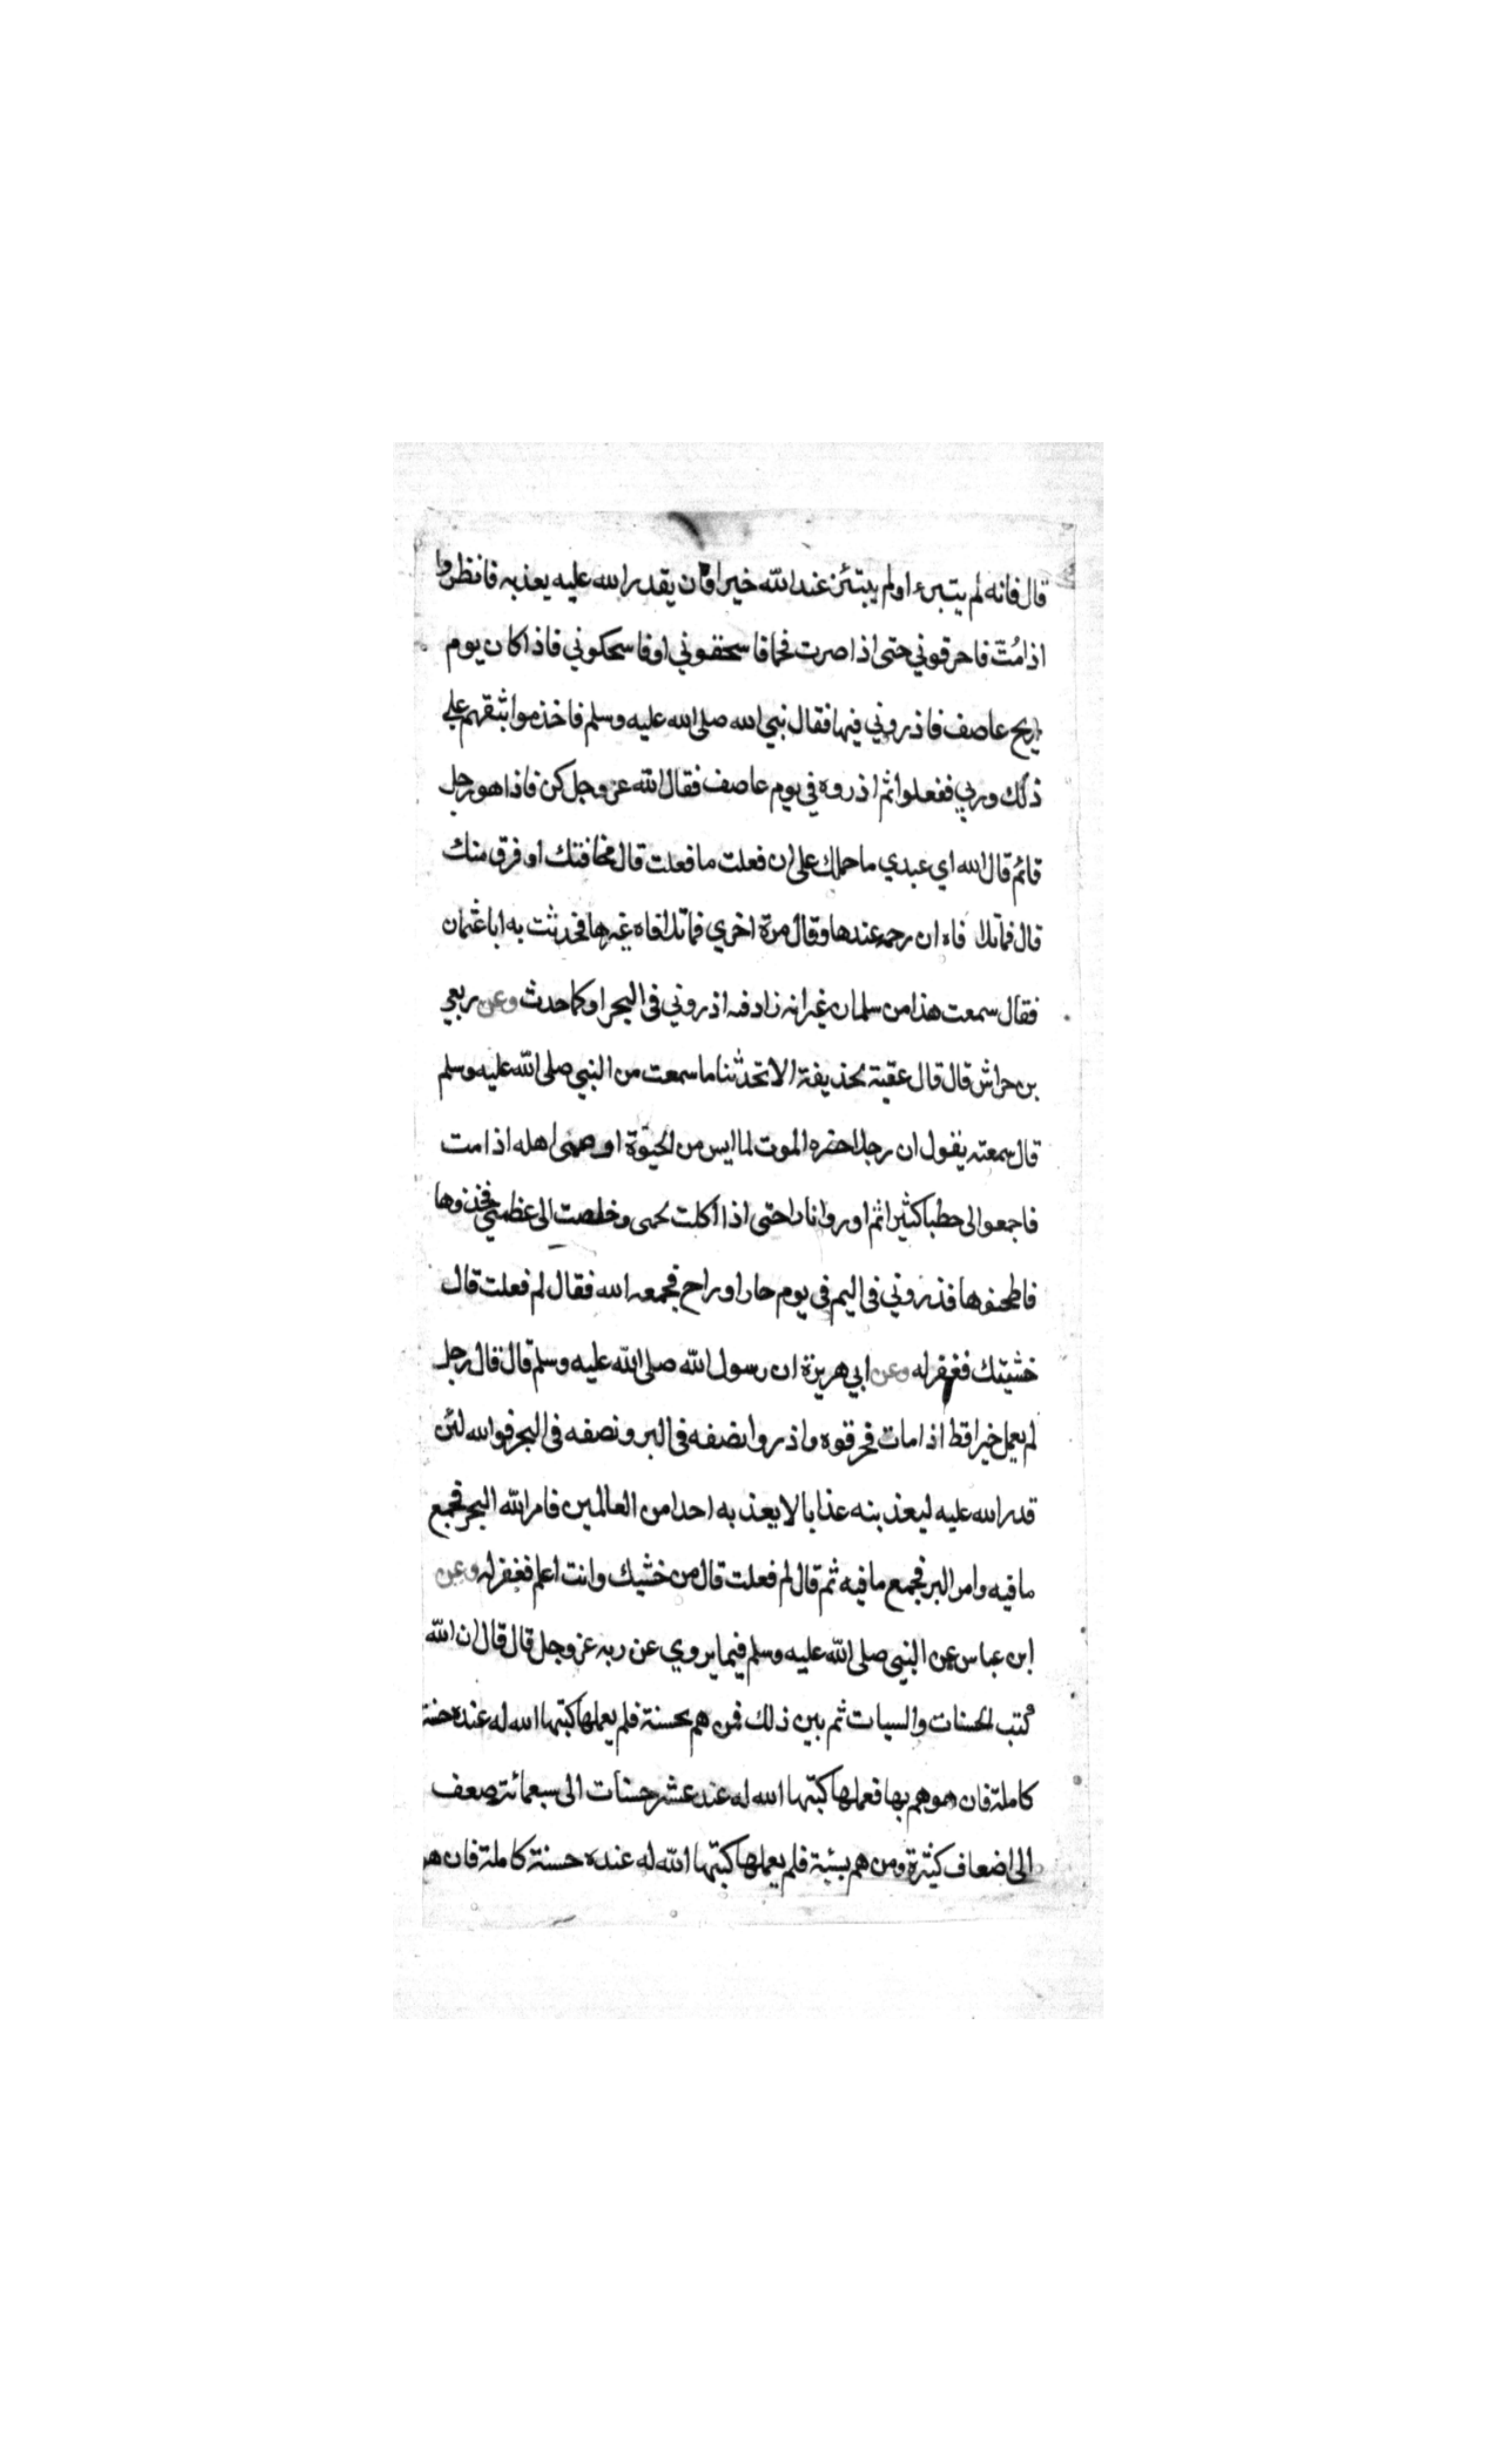 قال فانه لم يبتىء او لم يبتئز عند الله خيرا فان يقدر الله عليه يعذبه فانظروا
اذا مُتّ فاحرقوني حتى اذا صرت فحما فاسحقوني او فاسحكوني فاذا كان يوم
ريح عاصف فاذروني فيها فقال نبي الله صلى الله عليه وسلم فاخذ مواثيقهم على
ذلك وربي ففعلوا ثم اذروه في يوم عاصف فقال الله عز وجل كن فاذا هو رجل
قائم قال الله اي عبدي ما حملك على ان فعلت ما فعلت قال مخافتك او فرق منك
قال فما تلا فاه ان رحمه عندها وقال مرة اخري فما تلافاه غيرها فحدثت به ابا عثمان
فقال سمعت هذا من سلمان غير انه زاد فيه اذروني في البحر او كما حدث وعن ربعي
بن حراش قال قال عقبة لحذيفة الا تحدثنا ما سمعت من النبي صلى الله عليه وسلم
قال سمعته يقول ان رجلا حضره الموت لما ايس من الحيوة اوصى اهله اذا مت
فاجمعوا لى حطبا كثيرا ثم اوروا نارا حتى اذا اكلت لحمى وخلصت الى عظمي فخذوها
فاطحنوها فذروني في اليم في يوم حار او راح فجمعه الله فقال لم فعلت قال
خشيتك فغفر له وعن ابي هريرة ان رسول الله صلى الله عليه وسلم قال قال رجل
لم يعمل خيرا قط اذا مات فحرقوه واذروا نصفه في البر ونصفه في البحر فوالله لئن
قدر الله عليه ليعذبنه عذابا لا يعذب به احدا من العالمين فامر الله البحر فجمع
ما فيه وامر البر فجمع ما فيه ثم قال لم فعلت قال من خشيك وانت اعلم فغفر له وعن
ابن عباس عن النبي صلى الله عليه وسلم فيما يروي عن ربه عز وجل قال قال ان الله
كتب الحسنات والسيات ثم بين ذلك فمن هم بحسنة فلم يعملها كتبها الله له عنده حسنة
كاملة فان هو هم بها فعملها كتبها الله له عنده عشر حسنات الى سبعمائة ضعف
الى اضعاف كثيرة ومن هم بسيئة فلم يعملها كتبها الله له عنده حسنة كاملة فان هو